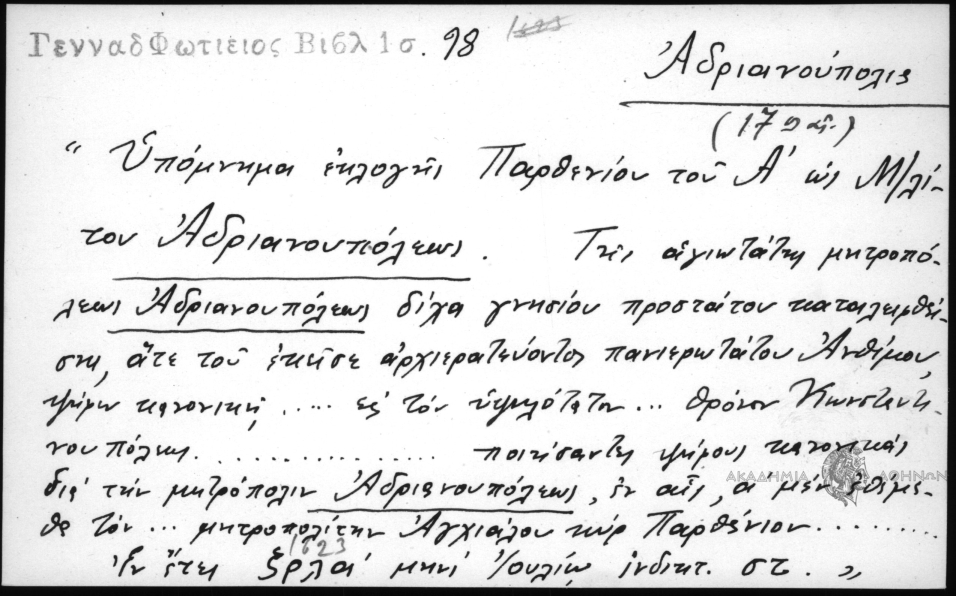 ΓενναδΦωτιειος Βιβλ 1 σ. 98 1623
Ἀδριανούπολις
(17ου αἰ.)
“ Ὑπόμνημα ἐκλογῆς Παρθενίου τοῦ Α΄ ὡς Μ/λί-
του Ἀδριανουπόλεως. Τῆς ἁγιωτάτης μητροπό-
λεως Ἀδριανουπόλεως δίχα γνησίου προστάτου καταλειφθεί-
σης, ἅτε τοῦ ἐκεῖσε ἀρχιερατεύοντος πανιερωτάτου Ἀνθίμου,
ψήφῳ κανονικῇ, ..... εἰς τὸν ὑψηλότατον ... θρόνον Κωνσταντι-
νουπόλεως ................ ποιήσαντες ψήφους κανονικάς
διὰ τὴν μητρόπολιν Ἀδριανουπόλεως, ἐν αἷς, α΄ μὲν ἐθέμε-
θα τὸν ... μητροπολίτην Ἀγχιάλου κὺρ Παρθένιον ........
1623
Ἐν ἔτει ξρλα΄ μηνὶ Ἰουλίῳ ἰνδικτ. στ. „
ΑΚΑΔΗΜΙΑ ΑΘΗΝΩΝ